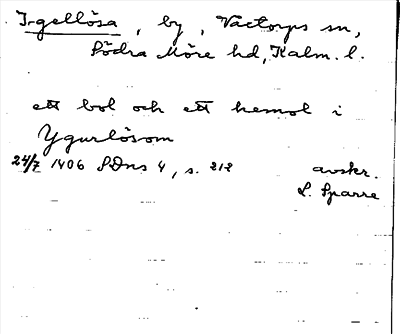 Igellösa, by, Vactorps sn,
Södra Möre hd, Kalm. l.
ett bol och ett hemol i
Ygurlösom
24/7 1406 SDns 4, s. 212 avskr.
L. Sparre